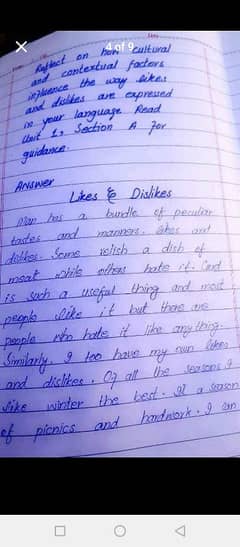 4 of 9
Reflect on how cultural
and contextual factors
influence the way likes
and dislikes are expressed
in your language Read
Unit 1, Section A for
guidance.
Answer
Likes & Dislikes
Man has a bundle of peculiar
tastes and manners. likes and
dislikes. Some relish a dish of
meat while others hate it. Curd
is such a useful thing and most
people like it but there are
people who hate it like anything.
Similarly, I too have my own likes
and dislikes. Of all the seasons I
like winter the best. It a season
of picnics and hardwork. I can